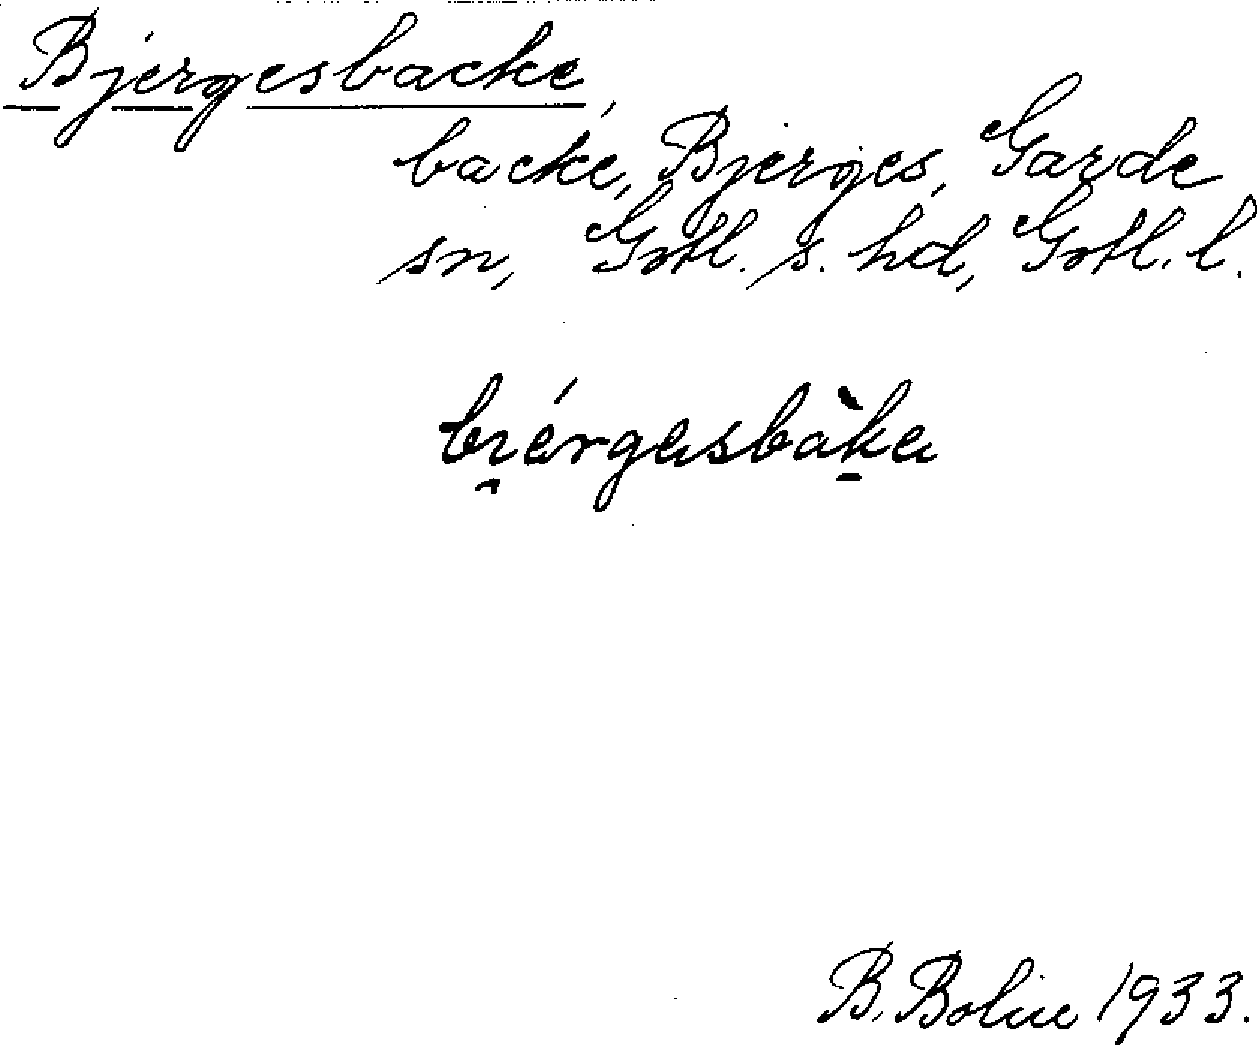 Bjergesbacke,
backe, Bjerges, Garde
sn, Gotl. s. hd, Gotl. l.
bi̯érgasbàka
B. Bolin 1933.